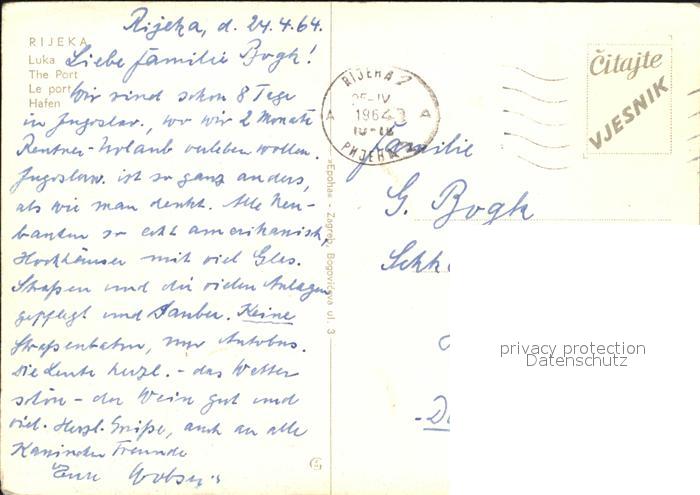 Rijeka, d. 24.4.64.
RIJEKA
Luka
The Port
Le port
Hafen
Liebe Familie Bogk!
Wir sind schon 8 Tage
in Jugoslav., wo wir 2 Monate
Rentner-Urlaub verleben wollen.
Jugoslaw. ist so ganz anders,
als wie man denkt. Alle Neu-
bauten so echt amerikanisch,
Hochhäuser mit viel Glas.
Straßen und die vielen Anlagen
gepflegt und sauber. Keine
Straßenbahn, nur Autobus.
Die Leute herzl. - das Wetter
schön - der Wein gut und
viel. Herzl. Grüße, auch an alle
Freunde
Eure
»Epoha« - Zagreb, Bogovićeva ul. 3
RIJEKA 2
25-IV
1964
A A
РИЈЕКА 2
Čitajte
VJESNIK
Familie
G. Bogk
privacy protection
Datenschutz